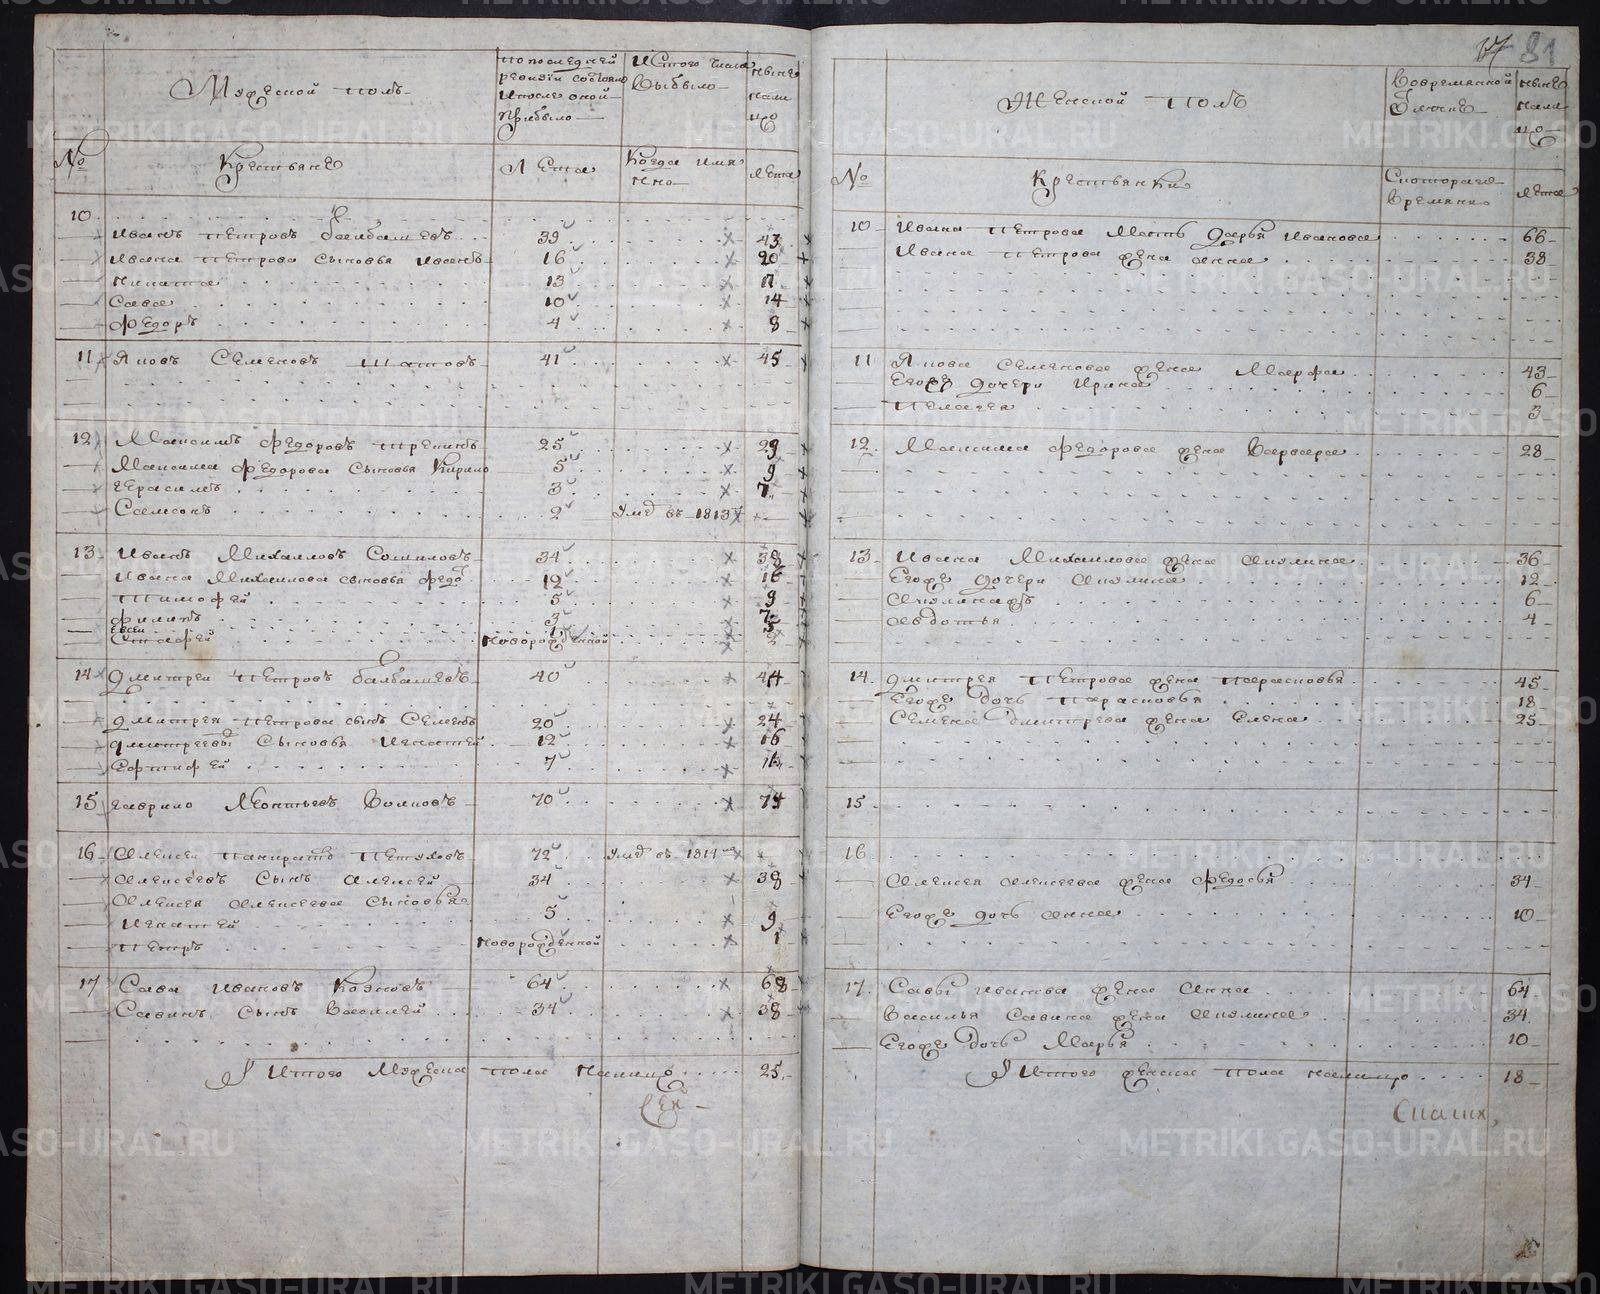 81
Мужеской полъ
по последней
ревизии состояло
и после оной
прибыло
Ис того числа
выбыло
ныне
нали
цо
№
Крестьяне
Лета
Когда имя
нно
лета
10
Иванъ Петровъ Балбашевъ 39 43
Ивана Петрова сыновья Иванъ 16 20
Никита 13 17
Сава 10 14
Федоръ 4 8
11 Яковъ Семеновъ 41 45
12 Максимъ Федоровъ 25 29
Максима Федорова сыновья Кирило 5 9
Герасимъ 3 7
Самсонъ 2 умре въ 1813м
13 Иванъ Михаиловъ 34 38
Ивана Михаилова сыновья Федоръ 12 16
Тимофей 5 9
Филипъ 3 7
Евсей 1 5
новорожденной 3
14 Дмитреи Петровъ Балбашевъ 40 44
Дмитрея Петрова сынъ Семенъ 20 24
Дмитреевы сыновья Игнатей 12 16
7 11
15 Гаврило Леонтьевъ Волковъ 70 74
16 Алексеи Панкратовъ Петуховъ 72 умре въ 1814м
Алексеевъ сынъ Алексей 34 38
Алексея Алексеева сыновья
Игнатей 5 9
Петръ новорожденной 1
17 Сава Ивановъ 64 68
Савинъ сынъ Василей 34 38
Итого мужеска пола налицо 25
Женской полъ
во временной
отлучке
ныне
нали
цо
№
Крестьянки
С котораго
времяни
лета
10 Ивана Петрова мать Дарья Иванова 66
Ивана Петрова жена Анна 38
11 Якова Семенова жена Марфа 43
Егожъ дочери Ирина 6
Пелагея 3
12 Максима Федорова жена Варвара 28
13 Ивана Михаилова жена Акулина 36
Егожъ дочери Акулина 12
6
Авдотья 4
14 Дмитрея Петрова жена Парасковья 45
Егожъ дочь Парасковья 18
Семена Дмитрева жена Елена 25
15
16
Алексея Алексеева жена Федосья 34
Егожъ дочь Анна 10
17 Савы Иванова жена Анна 64
Василья Савина жена Акулина 34
Егожъ дочь Марья 10
Итого женска пола налицо 18
METRIKI.GASO-URAL.RU